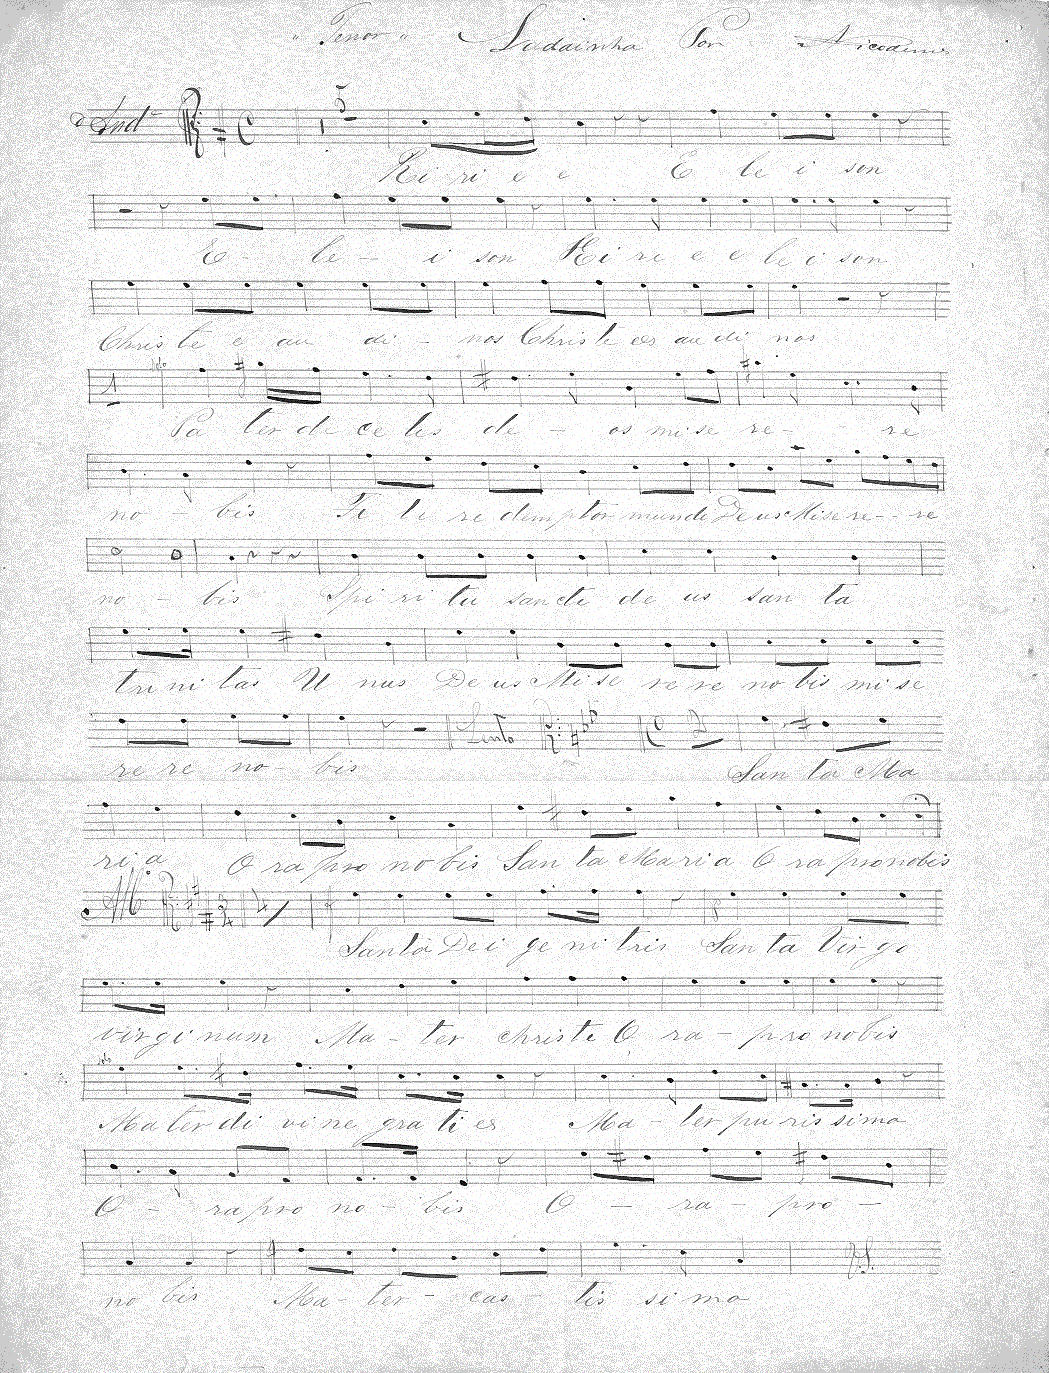 "Tenor" Ladainha Por Nicodemos
And.e C 5
Ki ri e e E le i son
E - le - i son Ki ri e e le i son
Chris te e au di - nos Chris te ex au di nos
1 solo
Pa ter de ce lis de - os mi se re - re
no - bis Fi li re demptor mundi De us Mise re - - re
no - bis Spi ri tu sancti de us san ta
tri ni tas U nus De us Mi se re re no bis mi se
re re no - bis Lento C 2 San ta Ma
ri a O ra pro no bis San ta Maria O ra pro nobis
Santa Dei ge ni tris San ta Vir go
virgi num Ma - ter christi O ra - pro nobis
solo
Ma ter di vi ne gra ti es Ma - ter pu ris sima
O - ra pro no - bis O - ra - pro -
no bis Ma - ter - cas - tis si ma V.S.